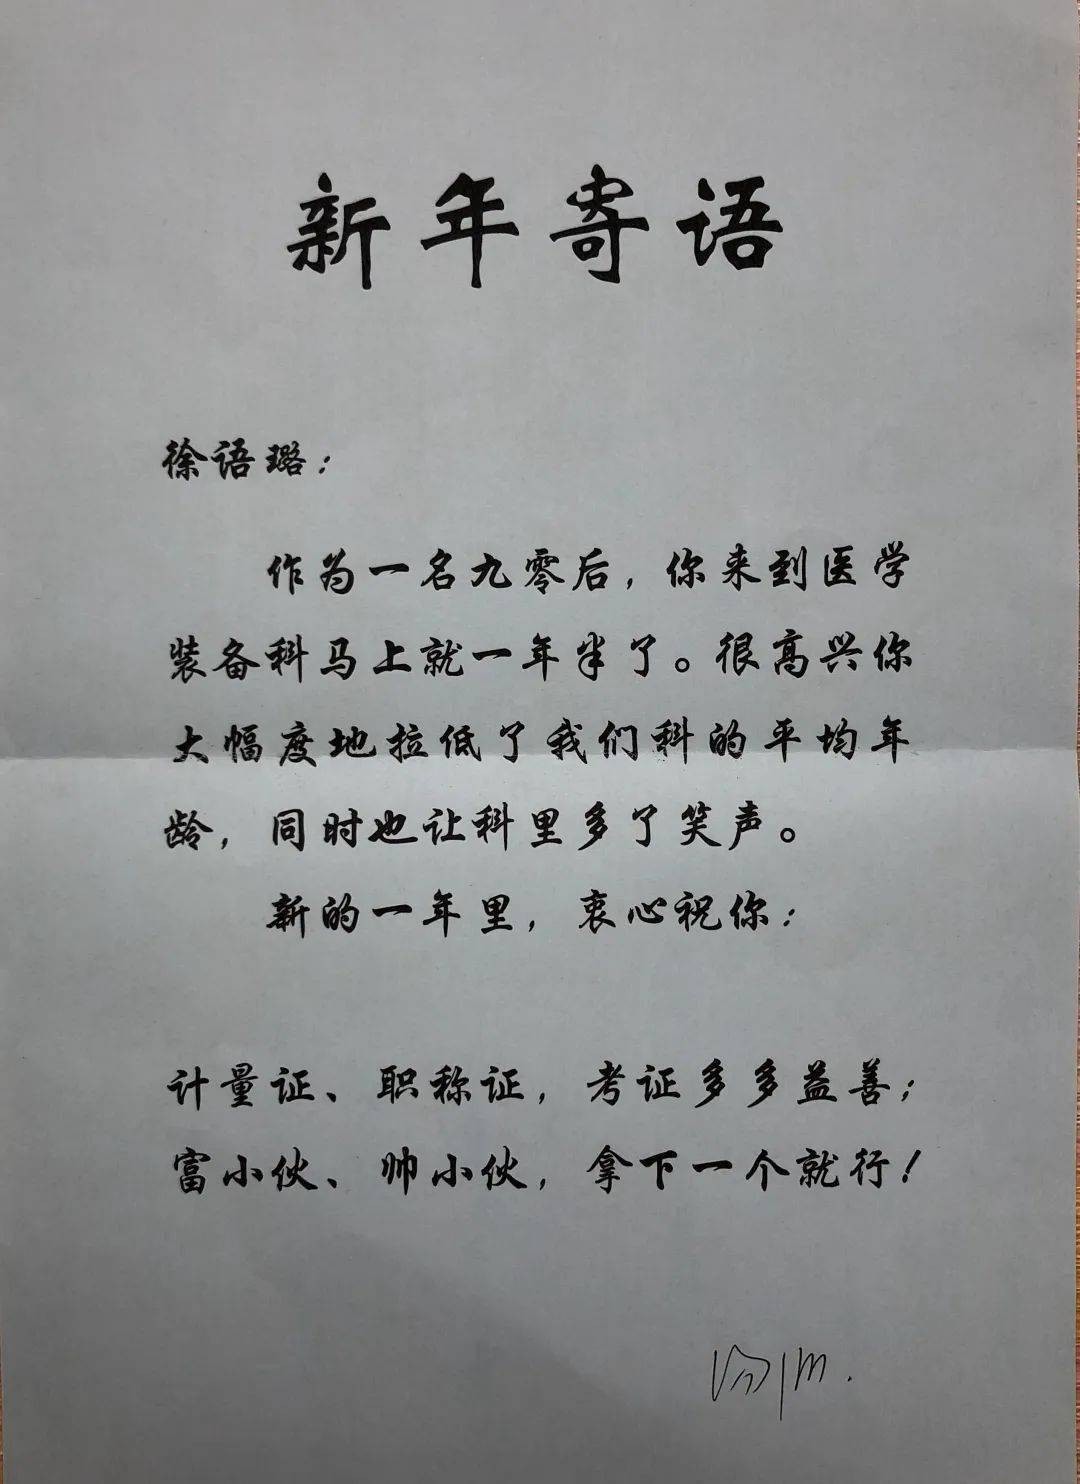 新年寄语
徐语璐：
作为一名九零后，你来到医学
装备科马上就一年半了。很高兴你
大幅度地拉低了我们科的平均年
龄，同时也让科里多了笑声。
新的一年里，衷心祝你：
计量证、职称证，考证多多益善；
富小伙、帅小伙，拿下一个就行！